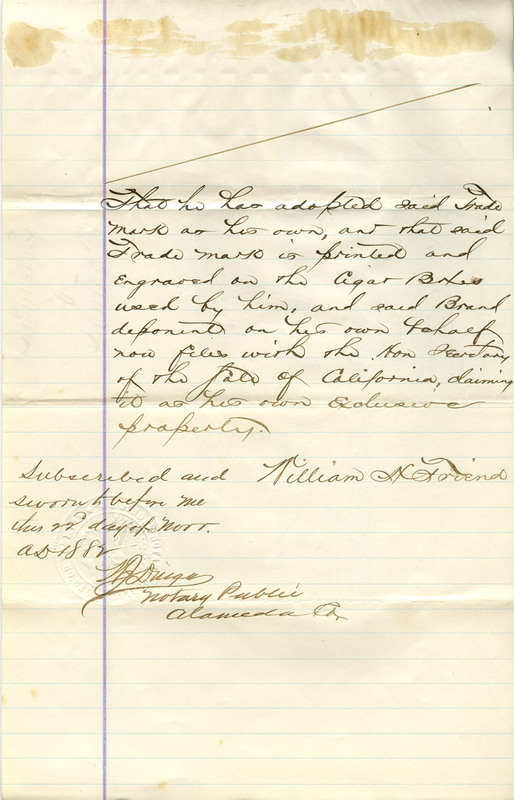 That he has adopted said Trade
mark as his own, and that said
Trade mark is printed and
engraved on the Cigar Boxes
used by him, and said Brand
deponent on his own behalf
now files with the Hon Secretary
of the State of California, claiming
it as his own exclusive
property.
William H Friend
Subscribed and
sworn to before me
this 22 day of Novr.
AD 1882
Notary Public
Alameda Co.